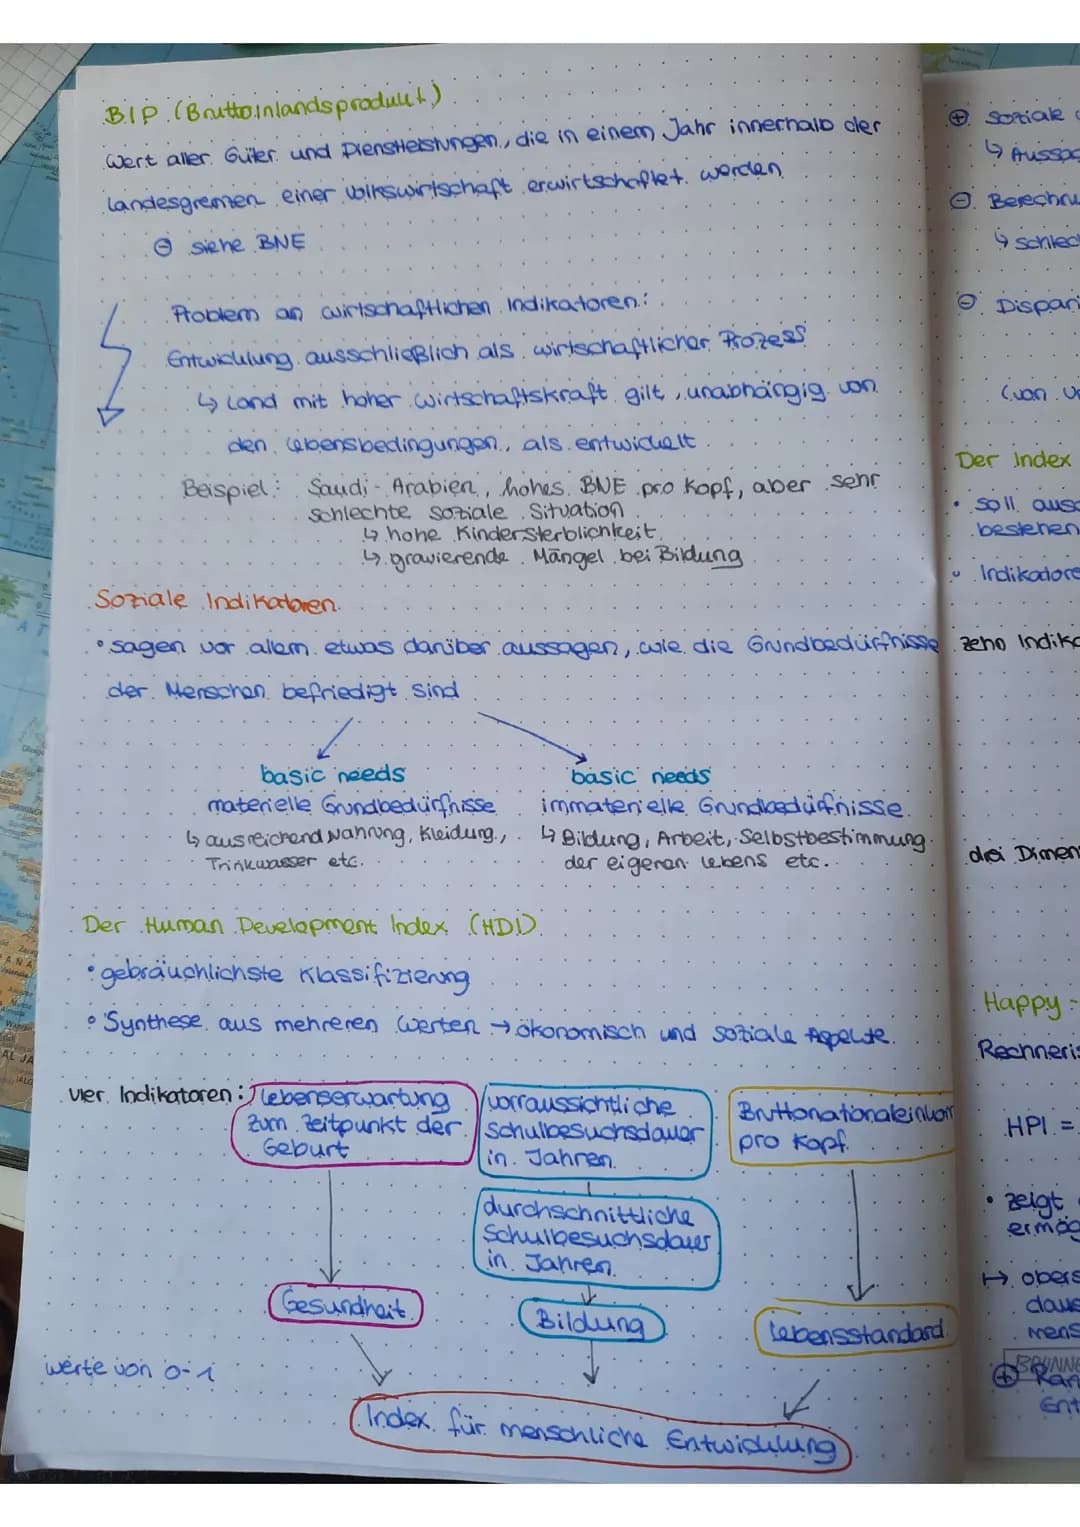 BIP (Bruttoinlandsprodukt)
Wert aller Güter und Dienstleistungen, die in einem Jahr innerhalb der
Landesgrenzen einer Volkswirtschaft erwirtschaftet werden
⊖ siehe BNE
Problem an wirtschaftlichen Indikatoren:
Entwicklung ausschließlich als wirtschaftlicher Prozess
↳ Land mit hoher Wirtschaftskraft gilt, unabhängig von
den Lebensbedingungen, als entwickelt
Beispiel: Saudi-Arabien, hohes BNE pro Kopf, aber sehr
schlechte soziale Situation
↳ hohe Kindersterblichkeit
↳ gravierende Mängel bei Bildung
Soziale Indikatoren
• sagen vor allem etwas darüber aussagen, wie die Grundbedürfnisse
der Menschen befriedigt sind
basic needs
materielle Grundbedürfnisse
↳ ausreichend Nahrung, Kleidung,
Trinkwasser etc.
basic needs
immaterielle Grundbedürfnisse
↳ Bildung, Arbeit, Selbstbestimmung
der eigenen Lebens etc.
Der Human Development Index (HDI)
• gebräuchlichste Klassifizierung
• Synthese aus mehreren Werten → ökonomisch und soziale Aspekte
vier Indikatoren:
Lebenserwartung
zum Zeitpunkt der
Geburt
vorraussichtliche
Schulbesuchsdauer
in Jahren
Bruttonationaleinkom
pro Kopf
durchschnittliche
Schulbesuchsdauer
in Jahren
Gesundheit
Bildung
Lebensstandard
Werte von 0-1
Index für menschliche Entwicklung
⊕ Soziale
↳ Aussag
⊖ Berechnu
↳ schlech
⊖ Dispari
(von
Der Index
• soll
bestehen
• Indikatore
zehn Indika
drei Dimen
Happy-
Rechneris
HPI =
• zeigt
ermög
↦ obers
daue
mens
⊕ Ran
Ent